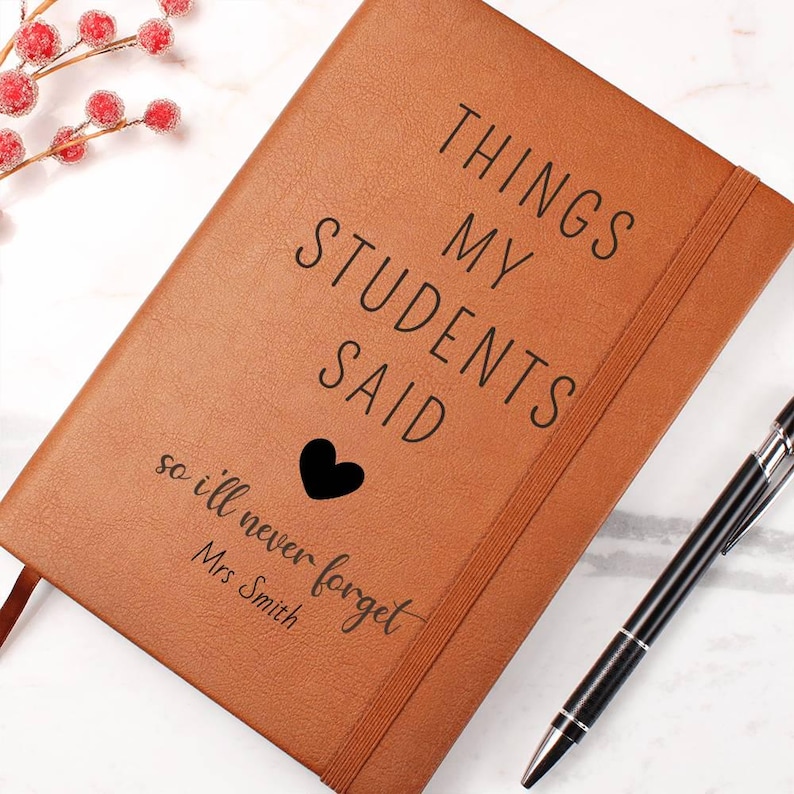 THINGS
MY
STUDENTS
SAID
so i'll never forget
Mrs Smith